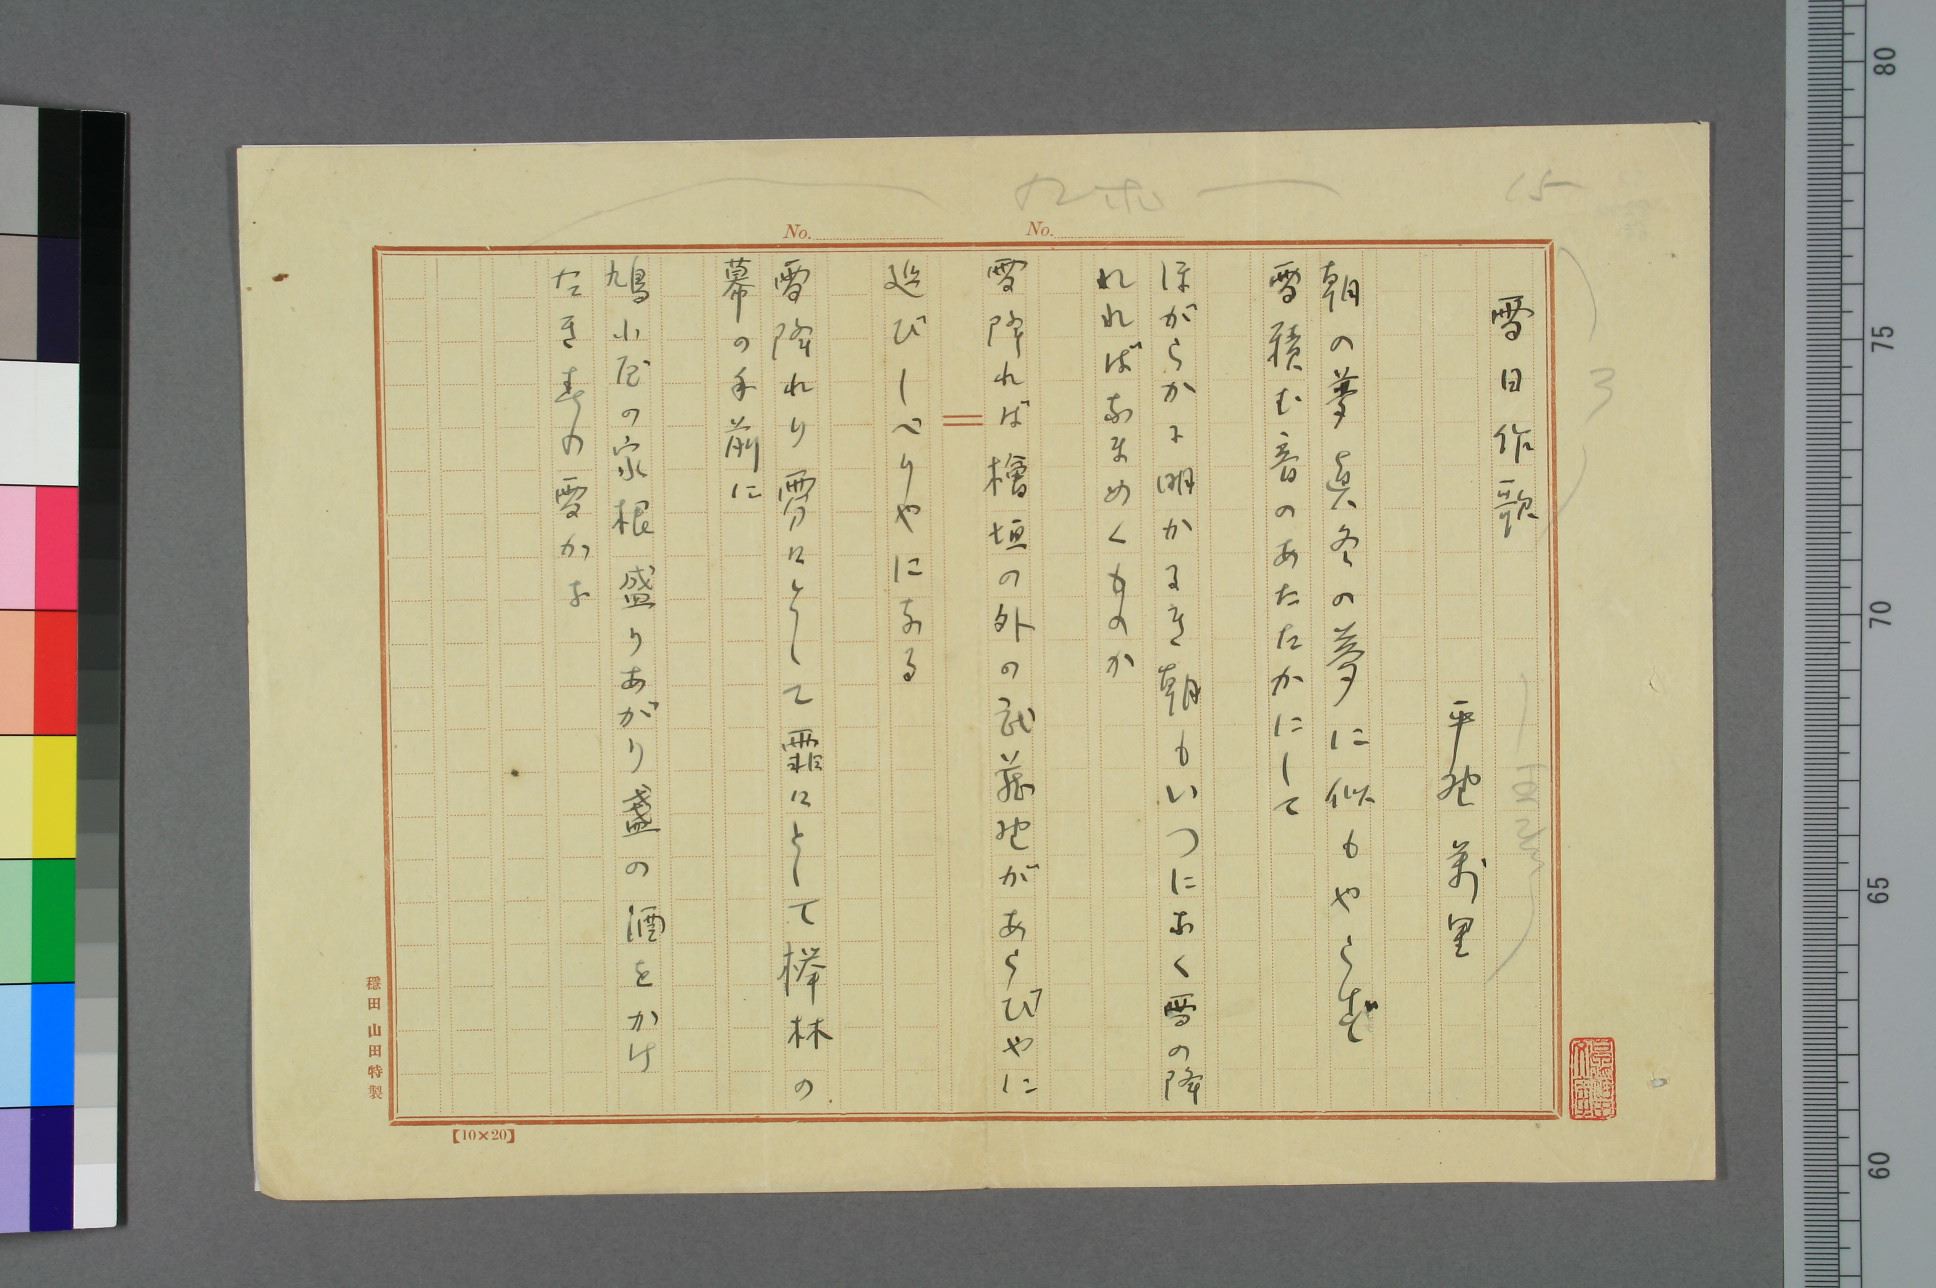 15
九ポ
3
No.
No.
雪日作歌
平野萬里
朝の夢眞冬の夢に似もやらず
雪積む音のあたたかにして
ほがらかに明かるき朝もいつになく雪の降
れればなまめくものか
雪降れば檜垣の外の武藏野があらびやに
延びしべりやになる
雪降れり雰にとして霜にとして欅林の
幕の手前に
鳩小屋の家根盛りあがり盞の酒をかけ
たき春の雪かな
穩田 山田特製
【10×20】
80
75
70
65
60